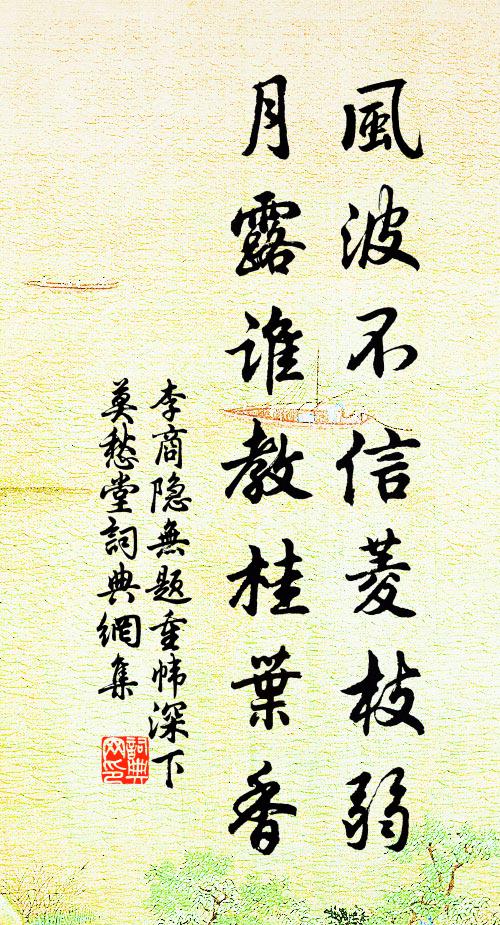 風波不信菱枝弱
月露誰教桂葉香
李商隐無题重帏深下
莫愁堂詞典網集